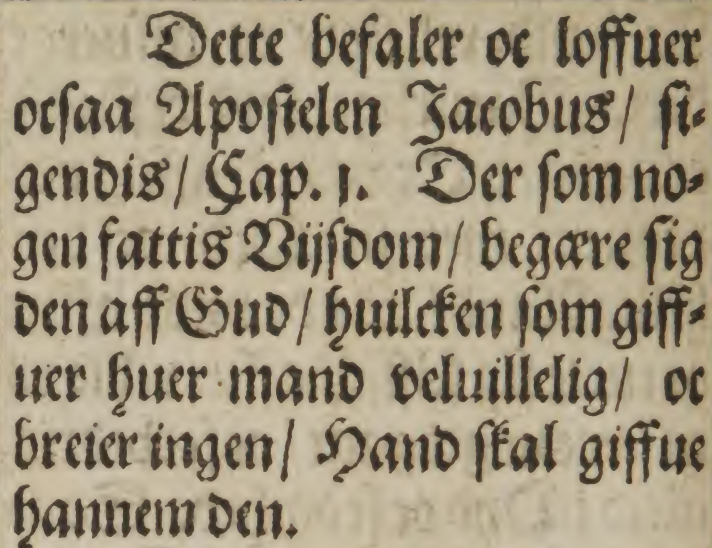 Dette befaler oc loffuer
ocsaa Apostelen Jacobus/ si⸗
gendis/ Cap. 1. Der som no⸗
gen fattis Vijsdom/ begære sig
den aff Gud/ huilcken som giff⸗
uer huer mand veluillelig/ oc
breier ingen/ Hand skal giffue
hannem den.